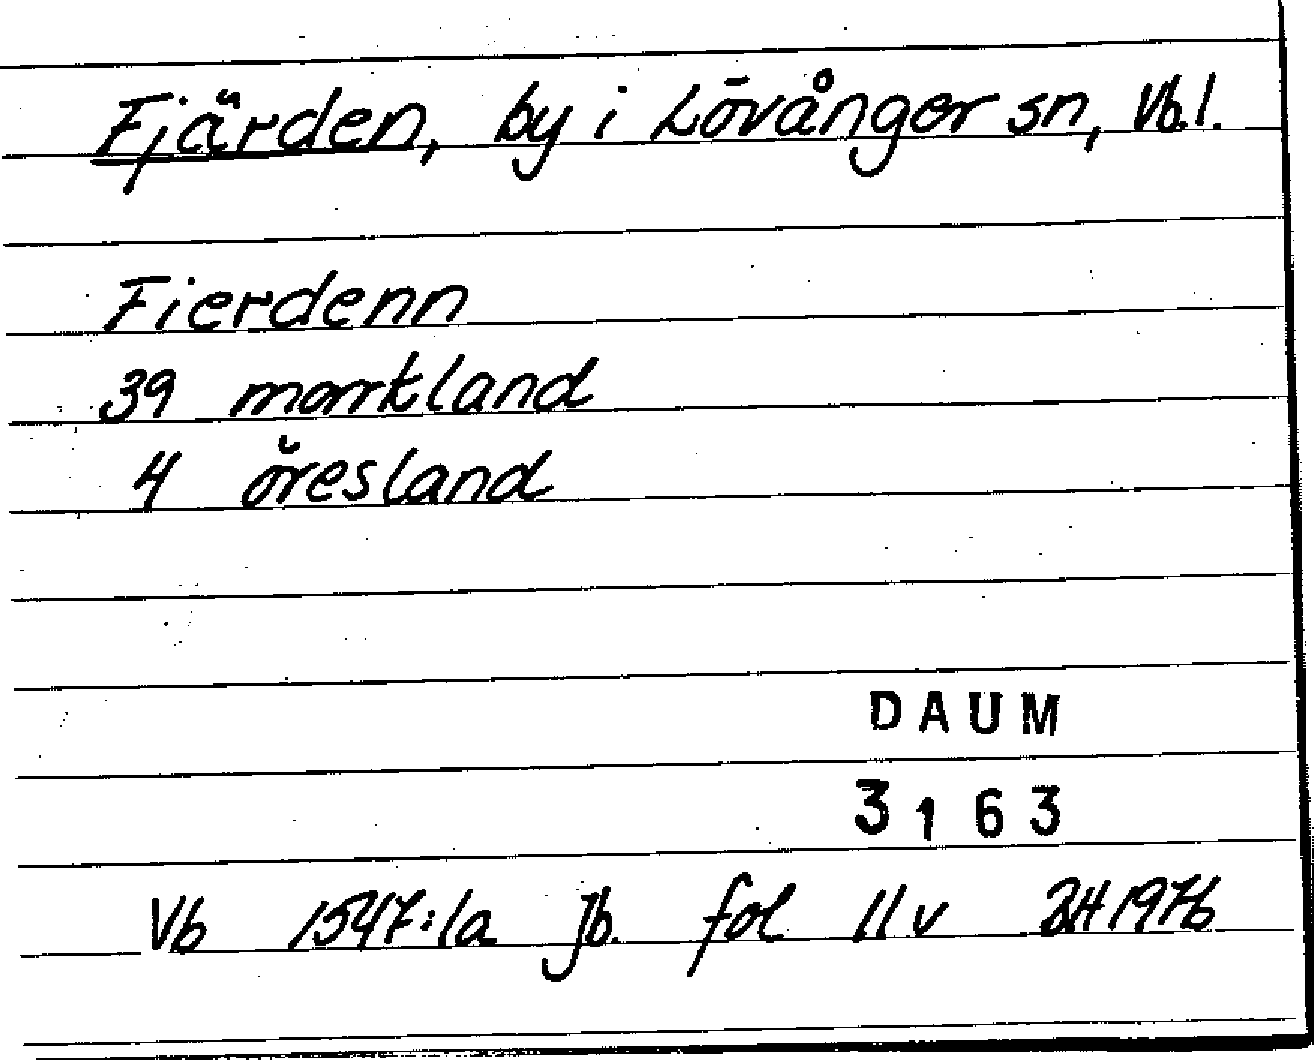 Fjärden, by i Lövånger sn, Vb.l.
Fierdenn
39 marckland
4 öresland
DAUM
3163
Vb 1547:1a Jb. fol 11v 1976